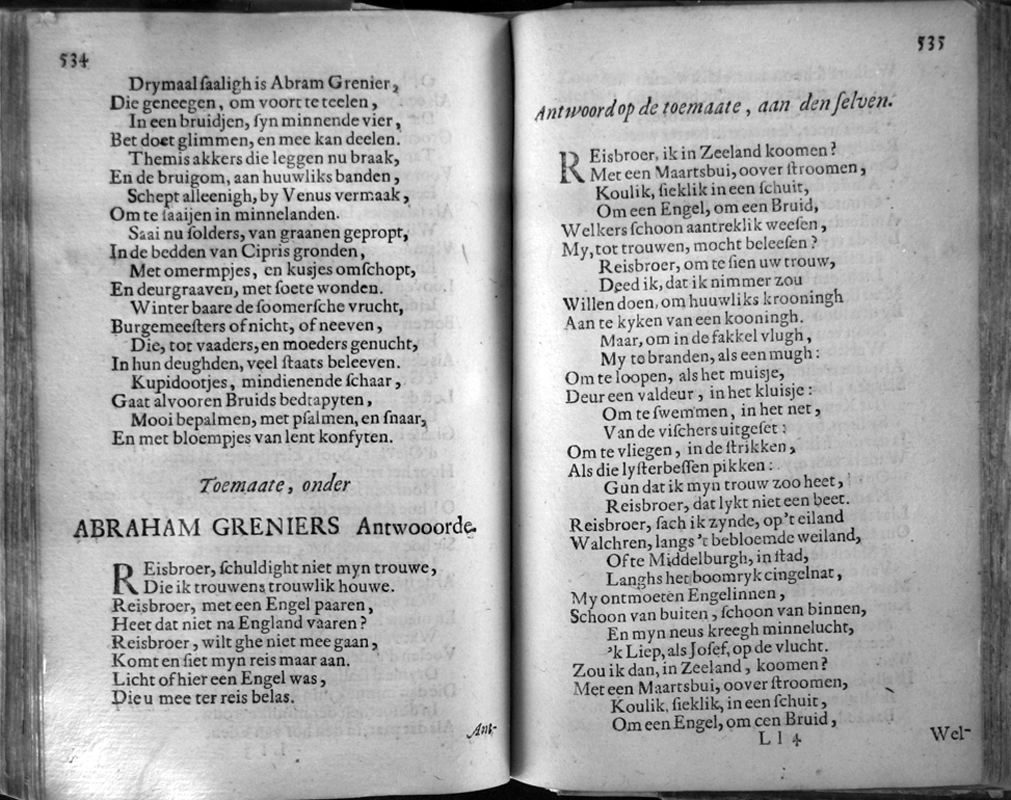 534
Drymaal ſaaligh is Abram Grenier,
Die geneegen, om voort te teelen,
In een bruidjen, ſyn minnende vier,
Bet doet glimmen, en mee kan deelen.
Themis akkers die leggen nu braak,
En de bruigom, aan huuwliks banden,
Schept alleenigh, by Venus vermaak,
Om te ſaaijen in minnelanden.
Saai nu ſolders, van graanen gepropt,
In de bedden van Cipris gronden,
Met omermpjes, en kusjes omſchopt,
En deurgraaven, met ſoete wonden.
Winter baare de ſoomerſche vrucht,
Burgemeeſters of nicht, of neeven,
Die, tot vaaders, en moeders genucht,
In hun deughden, veel ſtaats beleeven.
Kupidootjes, mindienende ſchaar,
Gaat alvooren Bruids bedtapyten,
Mooi bepalmen, met pſalmen, en ſnaar,
En met bloempjes van lent konfyten.
Toemaate, onder
ABRAHAM GRENIERS Antwooorde.
REisbroer, ſchuldight niet myn trouwe,
Die ik trouwens trouwlik houwe.
Reisbroer, met een Engel paaren,
Heet dat niet na England vaaren?
Reisbroer, wilt ghe niet mee gaan,
Komt en ſiet myn reis maar aan.
Licht of hier een Engel was,
Die u mee ter reis belas.
Ant-
535
Antwoord op de toemaate, aan den ſelven.
REisbroer, ik in Zeeland koomen?
Met een Maartsbui, oover ſtroomen,
Koulik, ſieklik in een ſchuit,
Om een Engel, om een Bruid,
Welkers ſchoon aantreklik weeſen,
My, tot trouwen, mocht beleeſen?
Reisbroer, om te ſien uw trouw,
Deed ik, dat ik nimmer zou
Willen doen, om huuwliks krooningh
Aan te kyken van een kooningh.
Maar, om in de fakkel vlugh,
My to branden, als een mugh:
Om te loopen, als het muisje,
Deur een valdeur, in het kluisje:
Om te ſwemmen, in het net,
Van de viſchers uitgeſet:
Om te vliegen, in de ſtrikken,
Als die lyſterbeſſen pikken:
Gun dat ik myn trouw zoo heet,
Reisbroer, dat lykt niet een beet.
Reisbroer, ſach ik zynde, op 't eiland
Walchren, langs 't bebloemde weiland,
Ofte Middelburgh, in ſtad,
Langhs het boomryk cingelnat,
My ontmoeten Engelinnen,
Schoon van buiten, ſchoon van binnen,
En myn neus kreegh minnelucht,
'k Liep, als Joſef, op de vlucht.
Zou ik dan, in Zeeland, koomen?
Met een Maartsbui, oover ſtroomen,
Koulik, ſieklik, in een ſchuit,
Om een Engel, om een Bruid,
Ll 4
Wel-